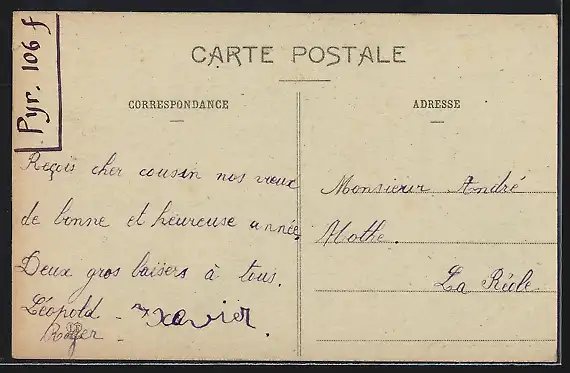 Pyr. 106 f
CARTE POSTALE
CORRESPONDANCE
ADRESSE
Reçois cher cousin nos vœux
de bonne et heureuse année,
Deux gros baisers à tous.
Léopold - Xavier.
Roger -
Monsieur André
Mothe.
La Réole